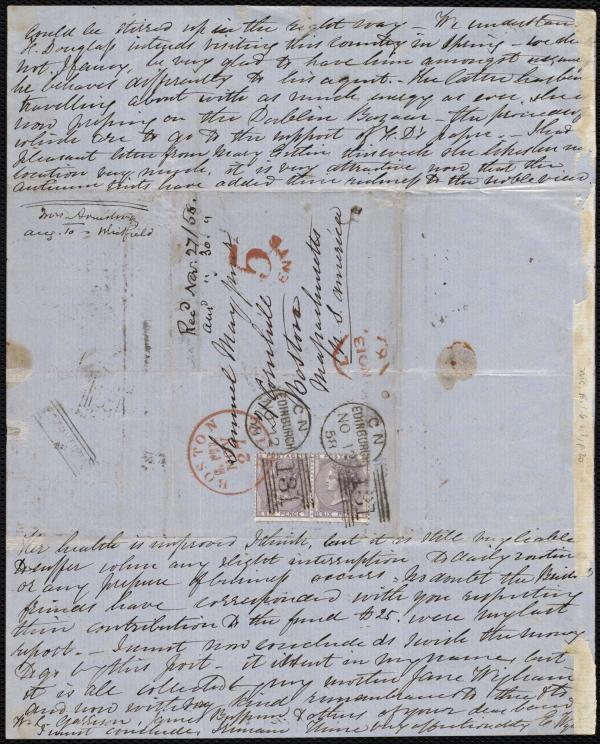 could be stirred up in the right way - We understand
F. Douglass intends visiting this Country in Spring - we shall
not I fancy, be very glad to have him amongst us, unless
he behaves differently to his agent. The latter has been
travelling about with as much energy as ever. She is
now on the Dublin Bazaar - the proceeds
which are to go to the support of F. D's paper. - I had
pleasant letter from Mary Estlin since she likes
location very much, it is very attractive now that the
autumn tints have added their to the noble view.
Mrs. Armstrong
Aug. 10 - Whitfield
Recd Nov. 27/58.
ansd " 30. "
5
CENTS
Samuel May junr
21 Cornhill
Boston
Massachusetts
U. S. America
BOSTON
27
CN
EDINBURGH
NO 12
CN
EDINBURGH
NO 1
58
131
131
SIX PENCE
Her health is improved I think, but it is still very liable
to suffer when any slight interruption to daily routine
or any pressure of business occurs. No doubt the
friends have corresponded with you respecting
their contribution to the fund £25. were my last
report - I must now conclude as I wish the money
to go by this post - it is sent in my name, but
it is all collected by my mother Jane Wigham
and now with kind remembrance to thee &
W. L. Garrison, & others of your dear band
I must conclude, I remain Thine very affectionately E. Wigham